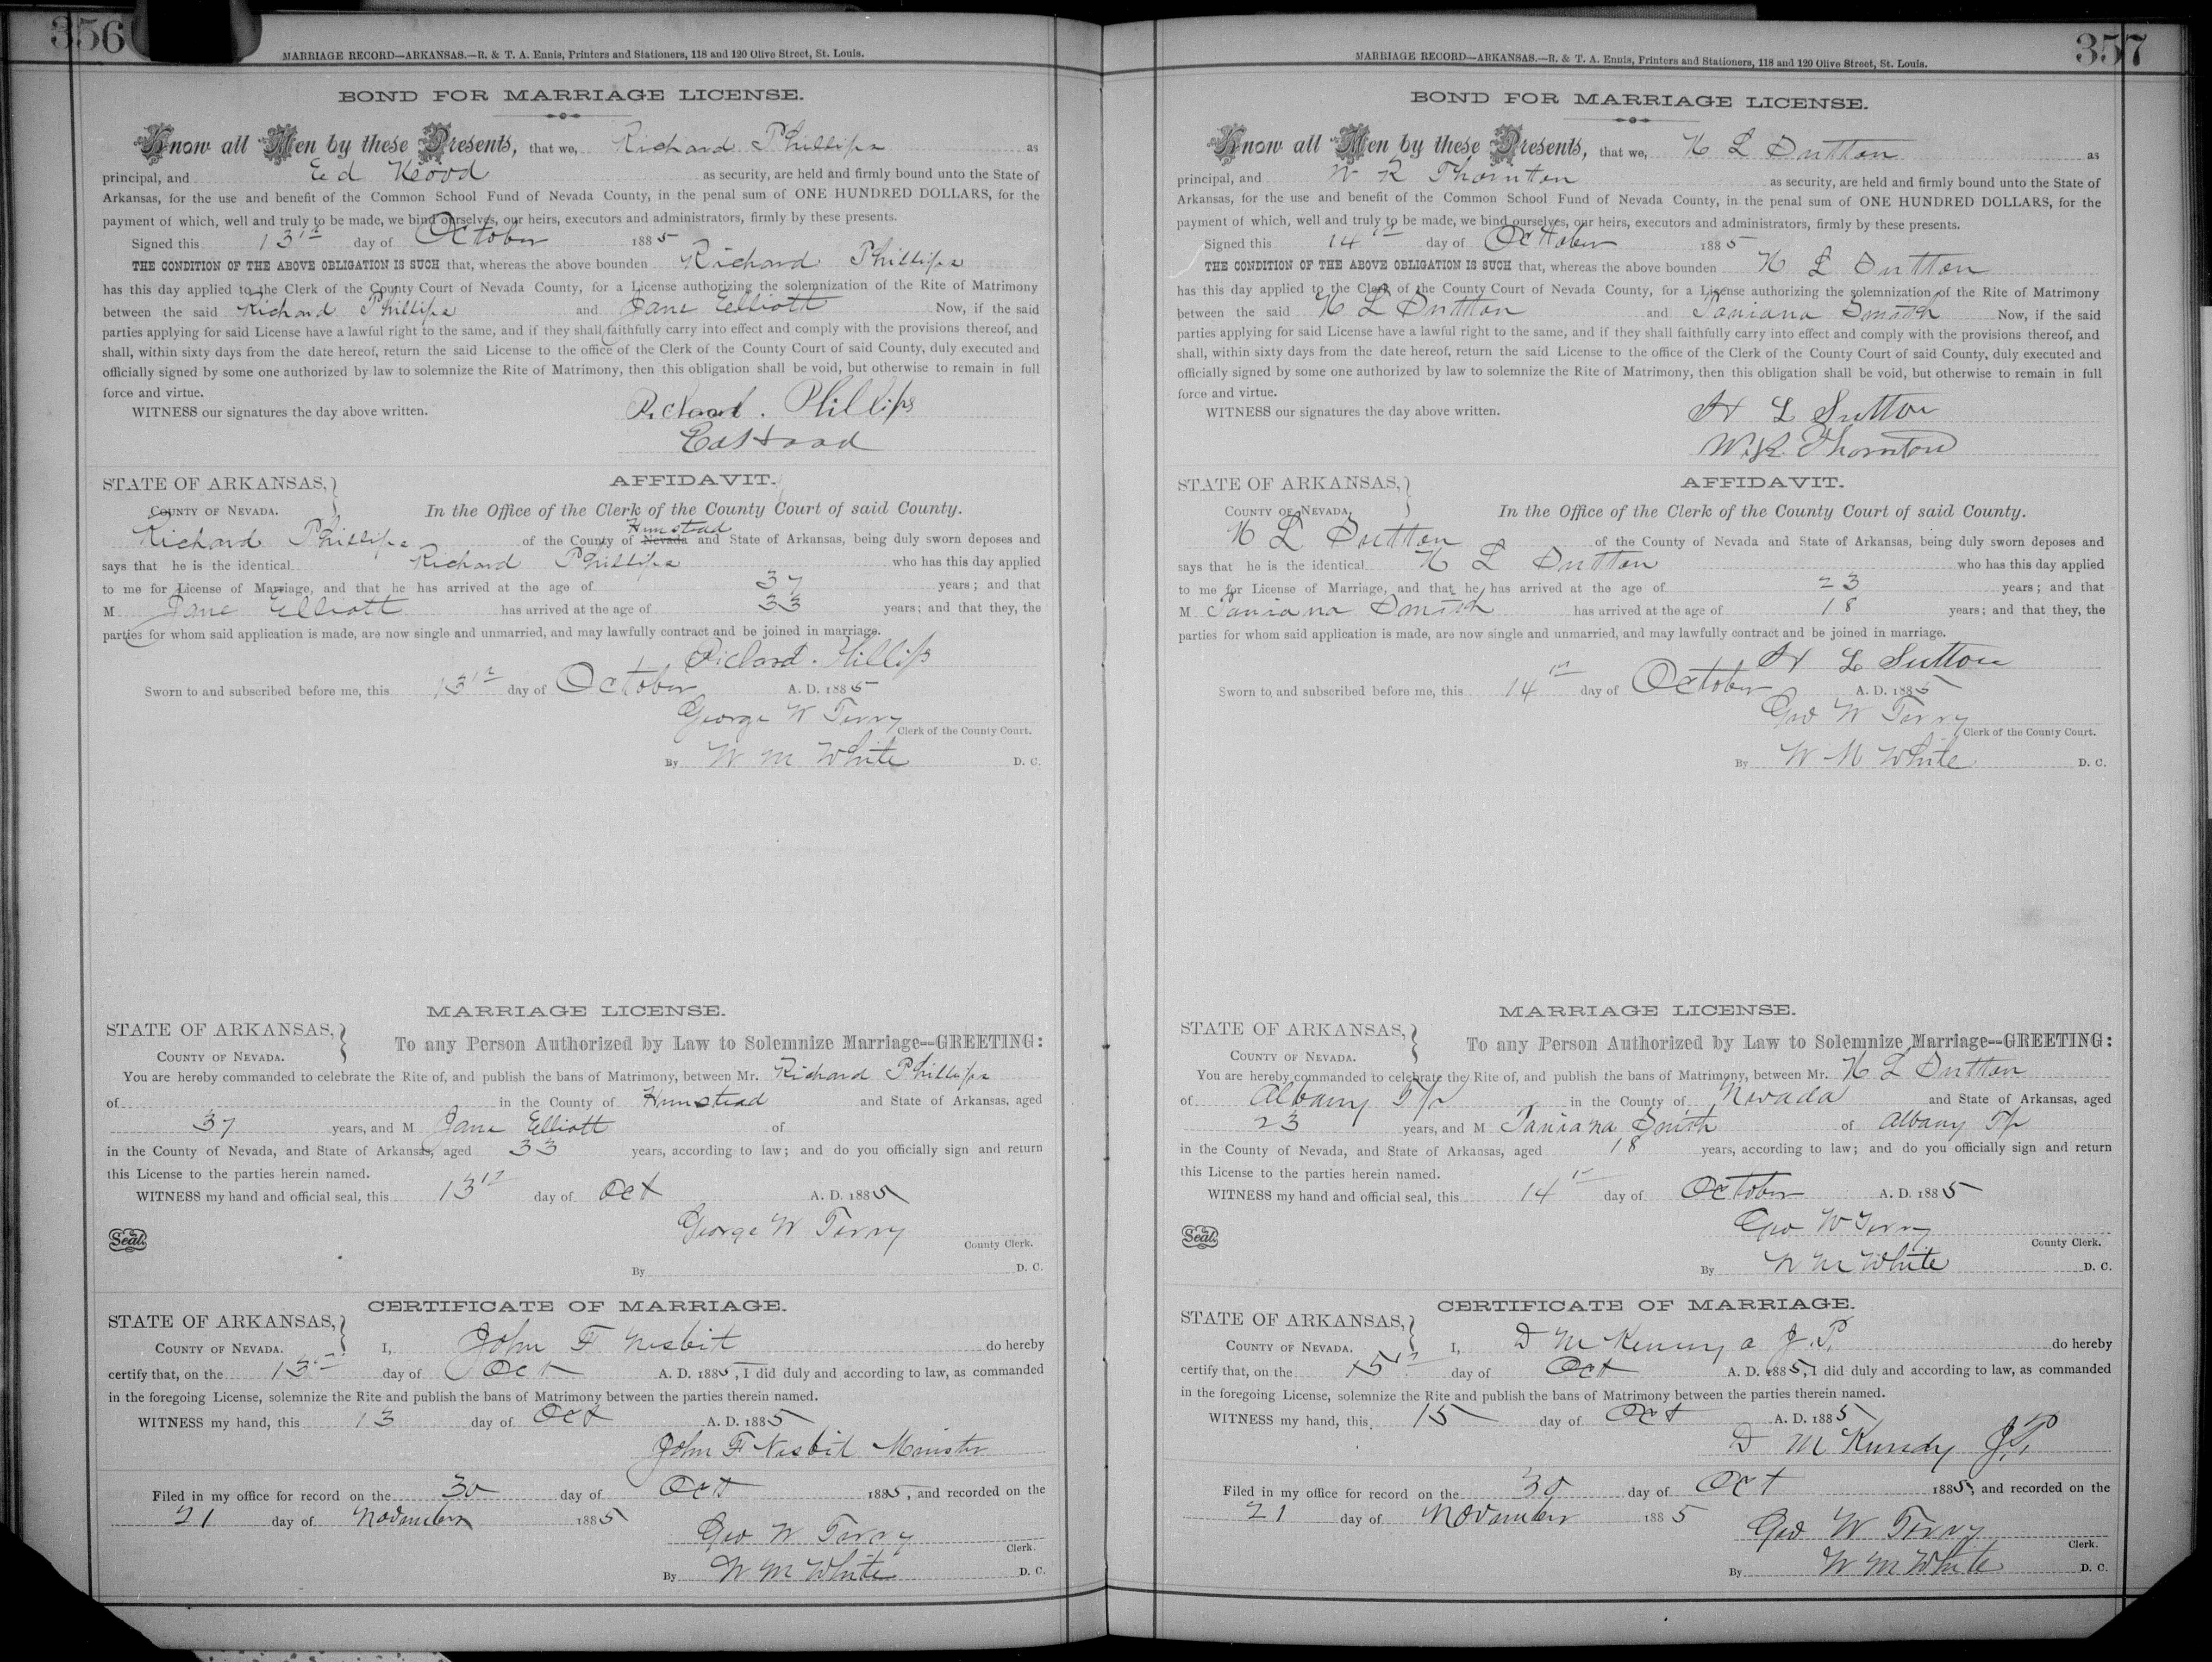 356
MARRIAGE RECORD—ARKANSAS.—R. & T. A. Ennis, Printers and Stationers, 118 and 120 Olive Street, St. Louis.
BOND FOR MARRIAGE LICENSE.
Know all Men by these Presents, that we, Richard Phillips as
principal, and Ed Hood as security, are held and firmly bound unto the State of
Arkansas, for the use and benefit of the Common School Fund of Nevada County, in the penal sum of ONE HUNDRED DOLLARS, for the
payment of which, well and truly to be made, we bind ourselves, our heirs, executors and administrators, firmly by these presents.
Signed this 13th day of October 1885
THE CONDITION OF THE ABOVE OBLIGATION IS SUCH that, whereas the above bounden Richard Phillips
has this day applied to the Clerk of the County Court of Nevada County, for a License authorizing the solemnization of the Rite of Matrimony
between the said Richard Phillips and Jane Elliott Now, if the said
parties applying for said License have a lawful right to the same, and if they shall faithfully carry into effect and comply with the provisions thereof, and
shall, within sixty days from the date hereof, return the said License to the office of the Clerk of the County Court of said County, duly executed and
officially signed by some one authorized by law to solemnize the Rite of Matrimony, then this obligation shall be void, but otherwise to remain in full
force and virtue.
WITNESS our signatures the day above written. Richard. Phillips
Ed Hood
STATE OF ARKANSAS, AFFIDAVIT.
COUNTY OF NEVADA. In the Office of the Clerk of the County Court of said County.
Hempstead
Richard Phillips of the County of Nevada and State of Arkansas, being duly sworn deposes and
says that he is the identical Richard Phillips who has this day applied
to me for License of Marriage, and that he has arrived at the age of 37 years; and that
M Jane Elliott has arrived at the age of 33 years; and that they, the
parties for whom said application is made, are now single and unmarried, and may lawfully contract and be joined in marriage.
Richard. Phillips
Sworn to and subscribed before me, this 13th day of October A. D. 1885
George W Terry Clerk of the County Court.
By W M White D. C.
MARRIAGE LICENSE.
STATE OF ARKANSAS,
COUNTY OF NEVADA. To any Person Authorized by Law to Solemnize Marriage—GREETING:
You are hereby commanded to celebrate the Rite of, and publish the bans of Matrimony, between Mr. Richard Phillips
of in the County of Hempstead and State of Arkansas, aged
37 years, and M Jane Elliott of
in the County of Nevada, and State of Arkansas, aged 33 years, according to law; and do you officially sign and return
this License to the parties herein named.
WITNESS my hand and official seal, this 13th day of Oct A. D. 1885
George W Terry
Seal. County Clerk.
By D. C.
CERTIFICATE OF MARRIAGE.
STATE OF ARKANSAS,
COUNTY OF NEVADA. I, John F Nesbit do hereby
certify that, on the 13th day of Oct A. D. 1885, I did duly and according to law, as commanded
in the foregoing License, solemnize the Rite and publish the bans of Matrimony between the parties therein named.
WITNESS my hand, this 13 day of Oct A. D. 1885
John F Nesbit Minister
Filed in my office for record on the 30 day of Oct 1885, and recorded on the
21 day of November 1885
Geo W Terry Clerk.
By W M White D. C.
357
MARRIAGE RECORD—ARKANSAS.—R. & T. A. Ennis, Printers and Stationers, 118 and 120 Olive Street, St. Louis.
BOND FOR MARRIAGE LICENSE.
Know all Men by these Presents, that we, H L Sutton as
principal, and W R Thornton as security, are held and firmly bound unto the State of
Arkansas, for the use and benefit of the Common School Fund of Nevada County, in the penal sum of ONE HUNDRED DOLLARS, for the
payment of which, well and truly to be made, we bind ourselves, our heirs, executors and administrators, firmly by these presents.
Signed this 14th day of October 1885
THE CONDITION OF THE ABOVE OBLIGATION IS SUCH that, whereas the above bounden H L Sutton
has this day applied to the Clerk of the County Court of Nevada County, for a License authorizing the solemnization of the Rite of Matrimony
between the said H L Sutton and Smith Now, if the said
parties applying for said License have a lawful right to the same, and if they shall faithfully carry into effect and comply with the provisions thereof, and
shall, within sixty days from the date hereof, return the said License to the office of the Clerk of the County Court of said County, duly executed and
officially signed by some one authorized by law to solemnize the Rite of Matrimony, then this obligation shall be void, but otherwise to remain in full
force and virtue.
WITNESS our signatures the day above written. H L Sutton
W. R. Thornton
STATE OF ARKANSAS, AFFIDAVIT.
COUNTY OF NEVADA. In the Office of the Clerk of the County Court of said County.
H L Sutton of the County of Nevada and State of Arkansas, being duly sworn deposes and
says that he is the identical H L Sutton who has this day applied
to me for License of Marriage, and that he has arrived at the age of 23 years; and that
M Smith has arrived at the age of 18 years; and that they, the
parties for whom said application is made, are now single and unmarried, and may lawfully contract and be joined in marriage.
H L Sutton
Sworn to and subscribed before me, this 14th day of October A. D. 1885
Geo W Terry Clerk of the County Court.
By W M White D. C.
MARRIAGE LICENSE.
STATE OF ARKANSAS,
COUNTY OF NEVADA. To any Person Authorized by Law to Solemnize Marriage—GREETING:
You are hereby commanded to celebrate the Rite of, and publish the bans of Matrimony, between Mr. H L Sutton
of Albany Tp in the County of Nevada and State of Arkansas, aged
23 years, and M Smith of Albany Tp
in the County of Nevada, and State of Arkansas, aged 18 years, according to law; and do you officially sign and return
this License to the parties herein named.
WITNESS my hand and official seal, this 14th day of October A. D. 1885
Geo W Terry
Seal. County Clerk.
By W M White D. C.
CERTIFICATE OF MARRIAGE.
STATE OF ARKANSAS,
COUNTY OF NEVADA. I, D M a J. P. do hereby
certify that, on the 15th day of Oct A. D. 1885, I did duly and according to law, as commanded
in the foregoing License, solemnize the Rite and publish the bans of Matrimony between the parties therein named.
WITNESS my hand, this 15 day of Oct A. D. 1885
D M J. P.
Filed in my office for record on the 30 day of Oct 1885, and recorded on the
21 day of November 1885
Geo W Terry Clerk.
By W M White D. C.